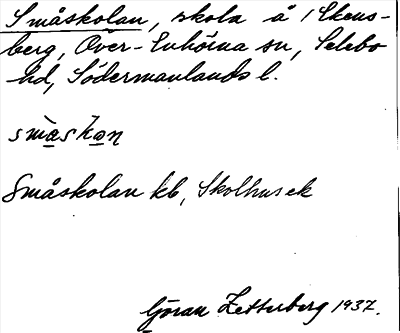 Småskolan, skola å 1 Ekens-
berg, Över-Enhörna sn, Selebo
hd, Södermanlands l.
småskan
Småskolan kb, Skolhus ek
Göran Zetterberg 1937.